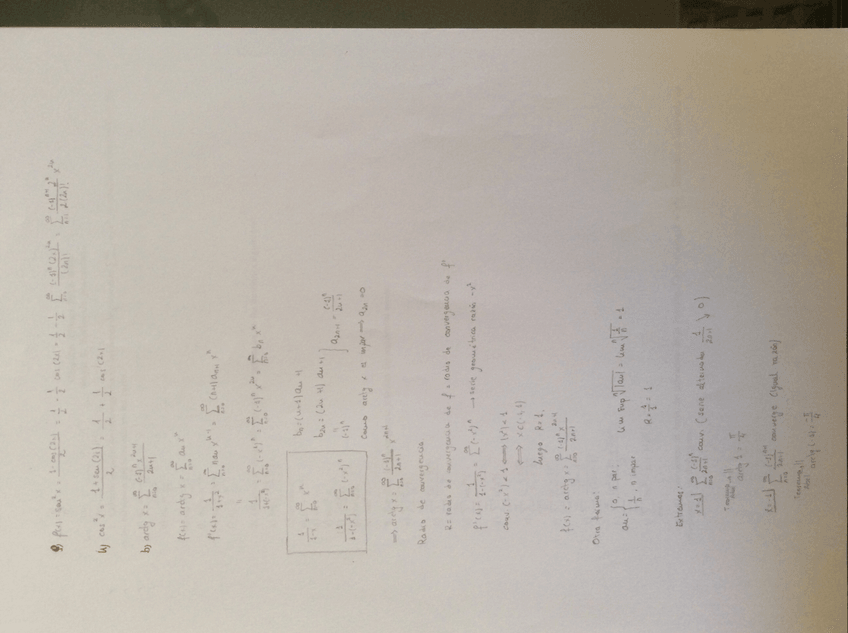 g) f(x) = sen² x = (1 - cos(2x))/2 = 1/2 - 1/2 cos(2x) = 1/2 - 1/2 ∑ (-1)ⁿ (2x)²ⁿ/(2n)!
h) cos² x = (1 + cos(2x))/2 = 1/2 + 1/2 cos(2x)
b) arctg x = ∑ (-1)ⁿ x²ⁿ⁺¹/(2n+1)
f(x) = arctg x = ∑ aₙ xⁿ
f'(x) = 1/(1+x²) = ∑ n aₙ xⁿ⁻¹ = ∑ (n+1) aₙ₊₁ xⁿ
1/(1+x²) = ∑ (-x²)ⁿ = ∑ (-1)ⁿ x²ⁿ = ∑ bₙ xⁿ
1/(1-x) = ∑ xⁿ
1/(1-(-x²)) = ∑ (-x²)ⁿ
bₙ = (n+1) aₙ₊₁
b₂ₙ = (2n+1) a₂ₙ₊₁
(-1)ⁿ
a₂ₙ₊₁ = (-1)ⁿ/(2n+1)
Como arctg x es impar ⟹ a₂ₙ = 0
⟹ arctg x = ∑ (-1)ⁿ/(2n+1) x²ⁿ⁺¹
Radio de convergencia
R = radio de convergencia de f = radio de convergencia de f'
f'(x) = 1/(1+x²) = ∑ (-x²)ⁿ → serie geométrica razón -x²
conv |-x²| < 1 ⟺ |x²| < 1
⟺ x ∈ (-1,1)
luego R = 1.
f(x) = arctg x = ∑ (-1)ⁿ x²ⁿ⁺¹/(2n+1)
Otra forma:
aₙ = { 0, n par
1/n, n impar
lim sup ⁿ√|aₙ| = lim ⁿ√(1/n) = 1
R = 1/1 = 1
Extremos:
x = 1 | ∑ (-1)ⁿ/(2n+1) conv. (serie alternada 1/(2n+1) ↘ 0)
Teorema
Abel
arctg 1 = π/4
x = -1 | ∑ (-1)ⁿ⁺¹/(2n+1) converge (igual razón)
Teorema
Abel
arctg(-1) = -π/4